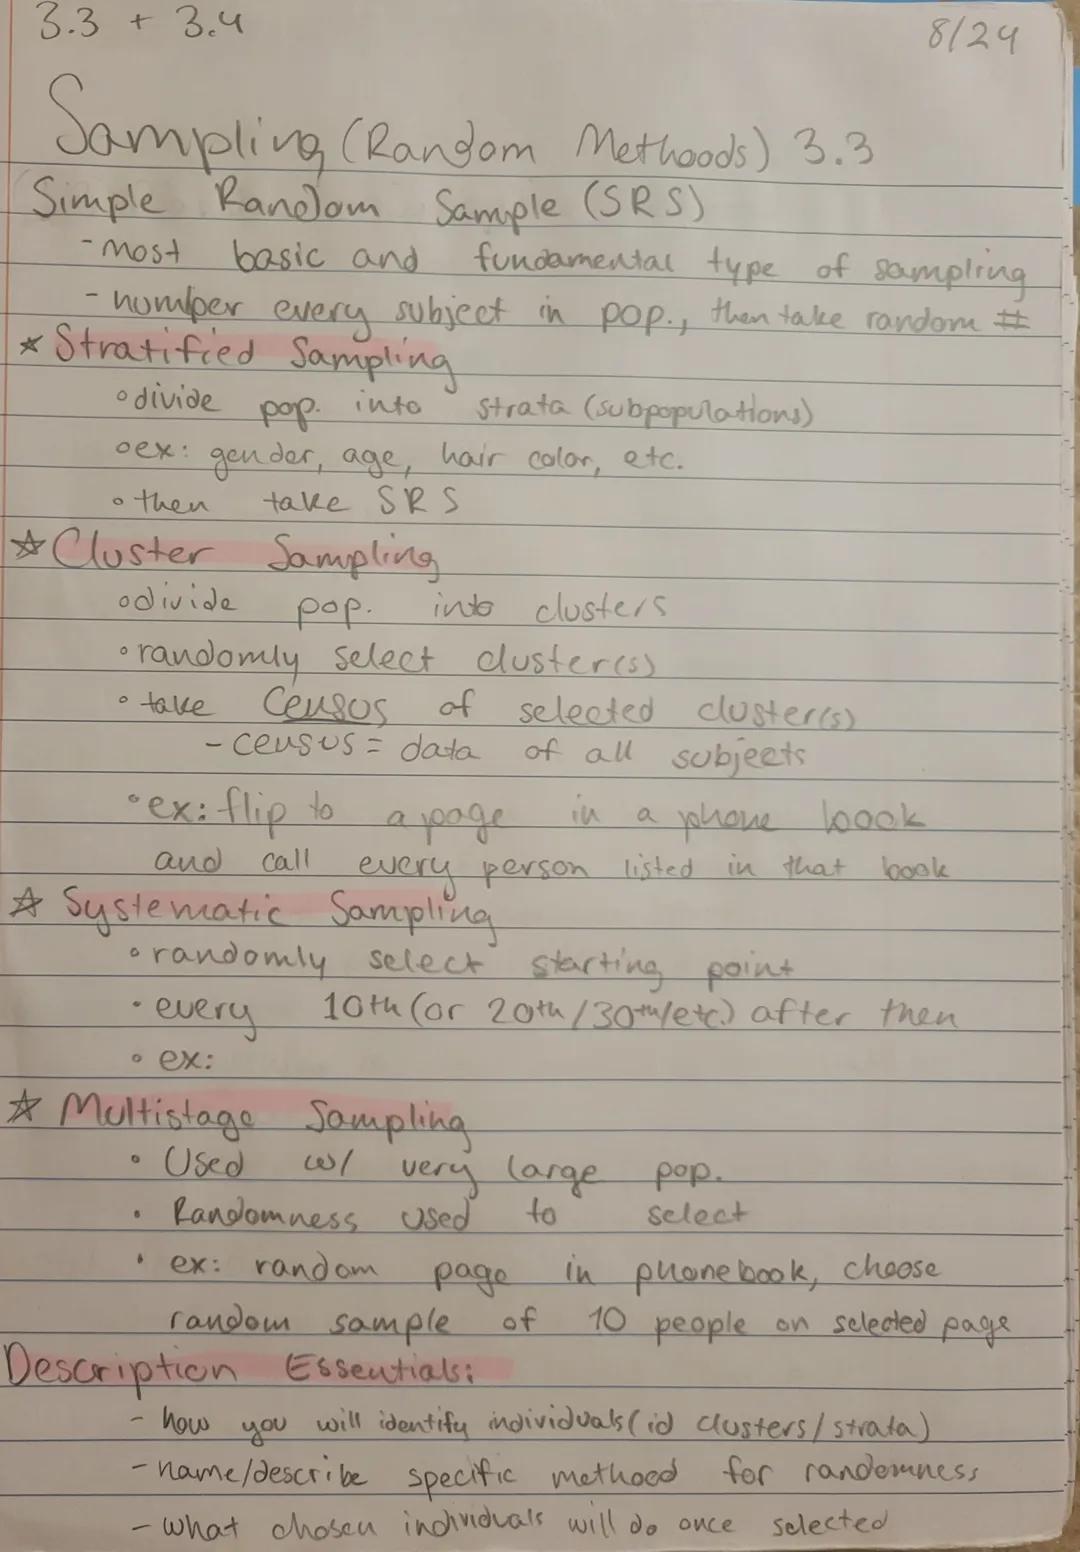 3.3 + 3.4
8/24
Sampling (Random Methoods) 3.3
Simple Random Sample (SRS)
- most basic and fundamental type of sampling
- number every subject in pop., then take random #
☆ Stratified Sampling
◦ divide pop. into strata (subpopulations)
◦ ex: gender, age, hair color, etc.
◦ then take SRS
☆ Cluster Sampling
◦ divide pop. into clusters
◦ randomly select cluster(s)
◦ take Census of selected cluster(s)
- census = data of all subjects
◦ ex: flip to a page in a phone boook
and call every person listed in that book
☆ Systematic Sampling
◦ randomly select starting point
• every 10th (or 20th/30th/etc.) after then
◦ ex:
☆ Multistage Sampling
• Used w/ very large pop.
• Randomness used to select
• ex: random page in phonebook, choose
random sample of 10 people on selected page
Description Essentials:
- how you will identify individuals (id clusters/strata)
- name/describe specific methood for randomness
- what chosen individuals will do once selected